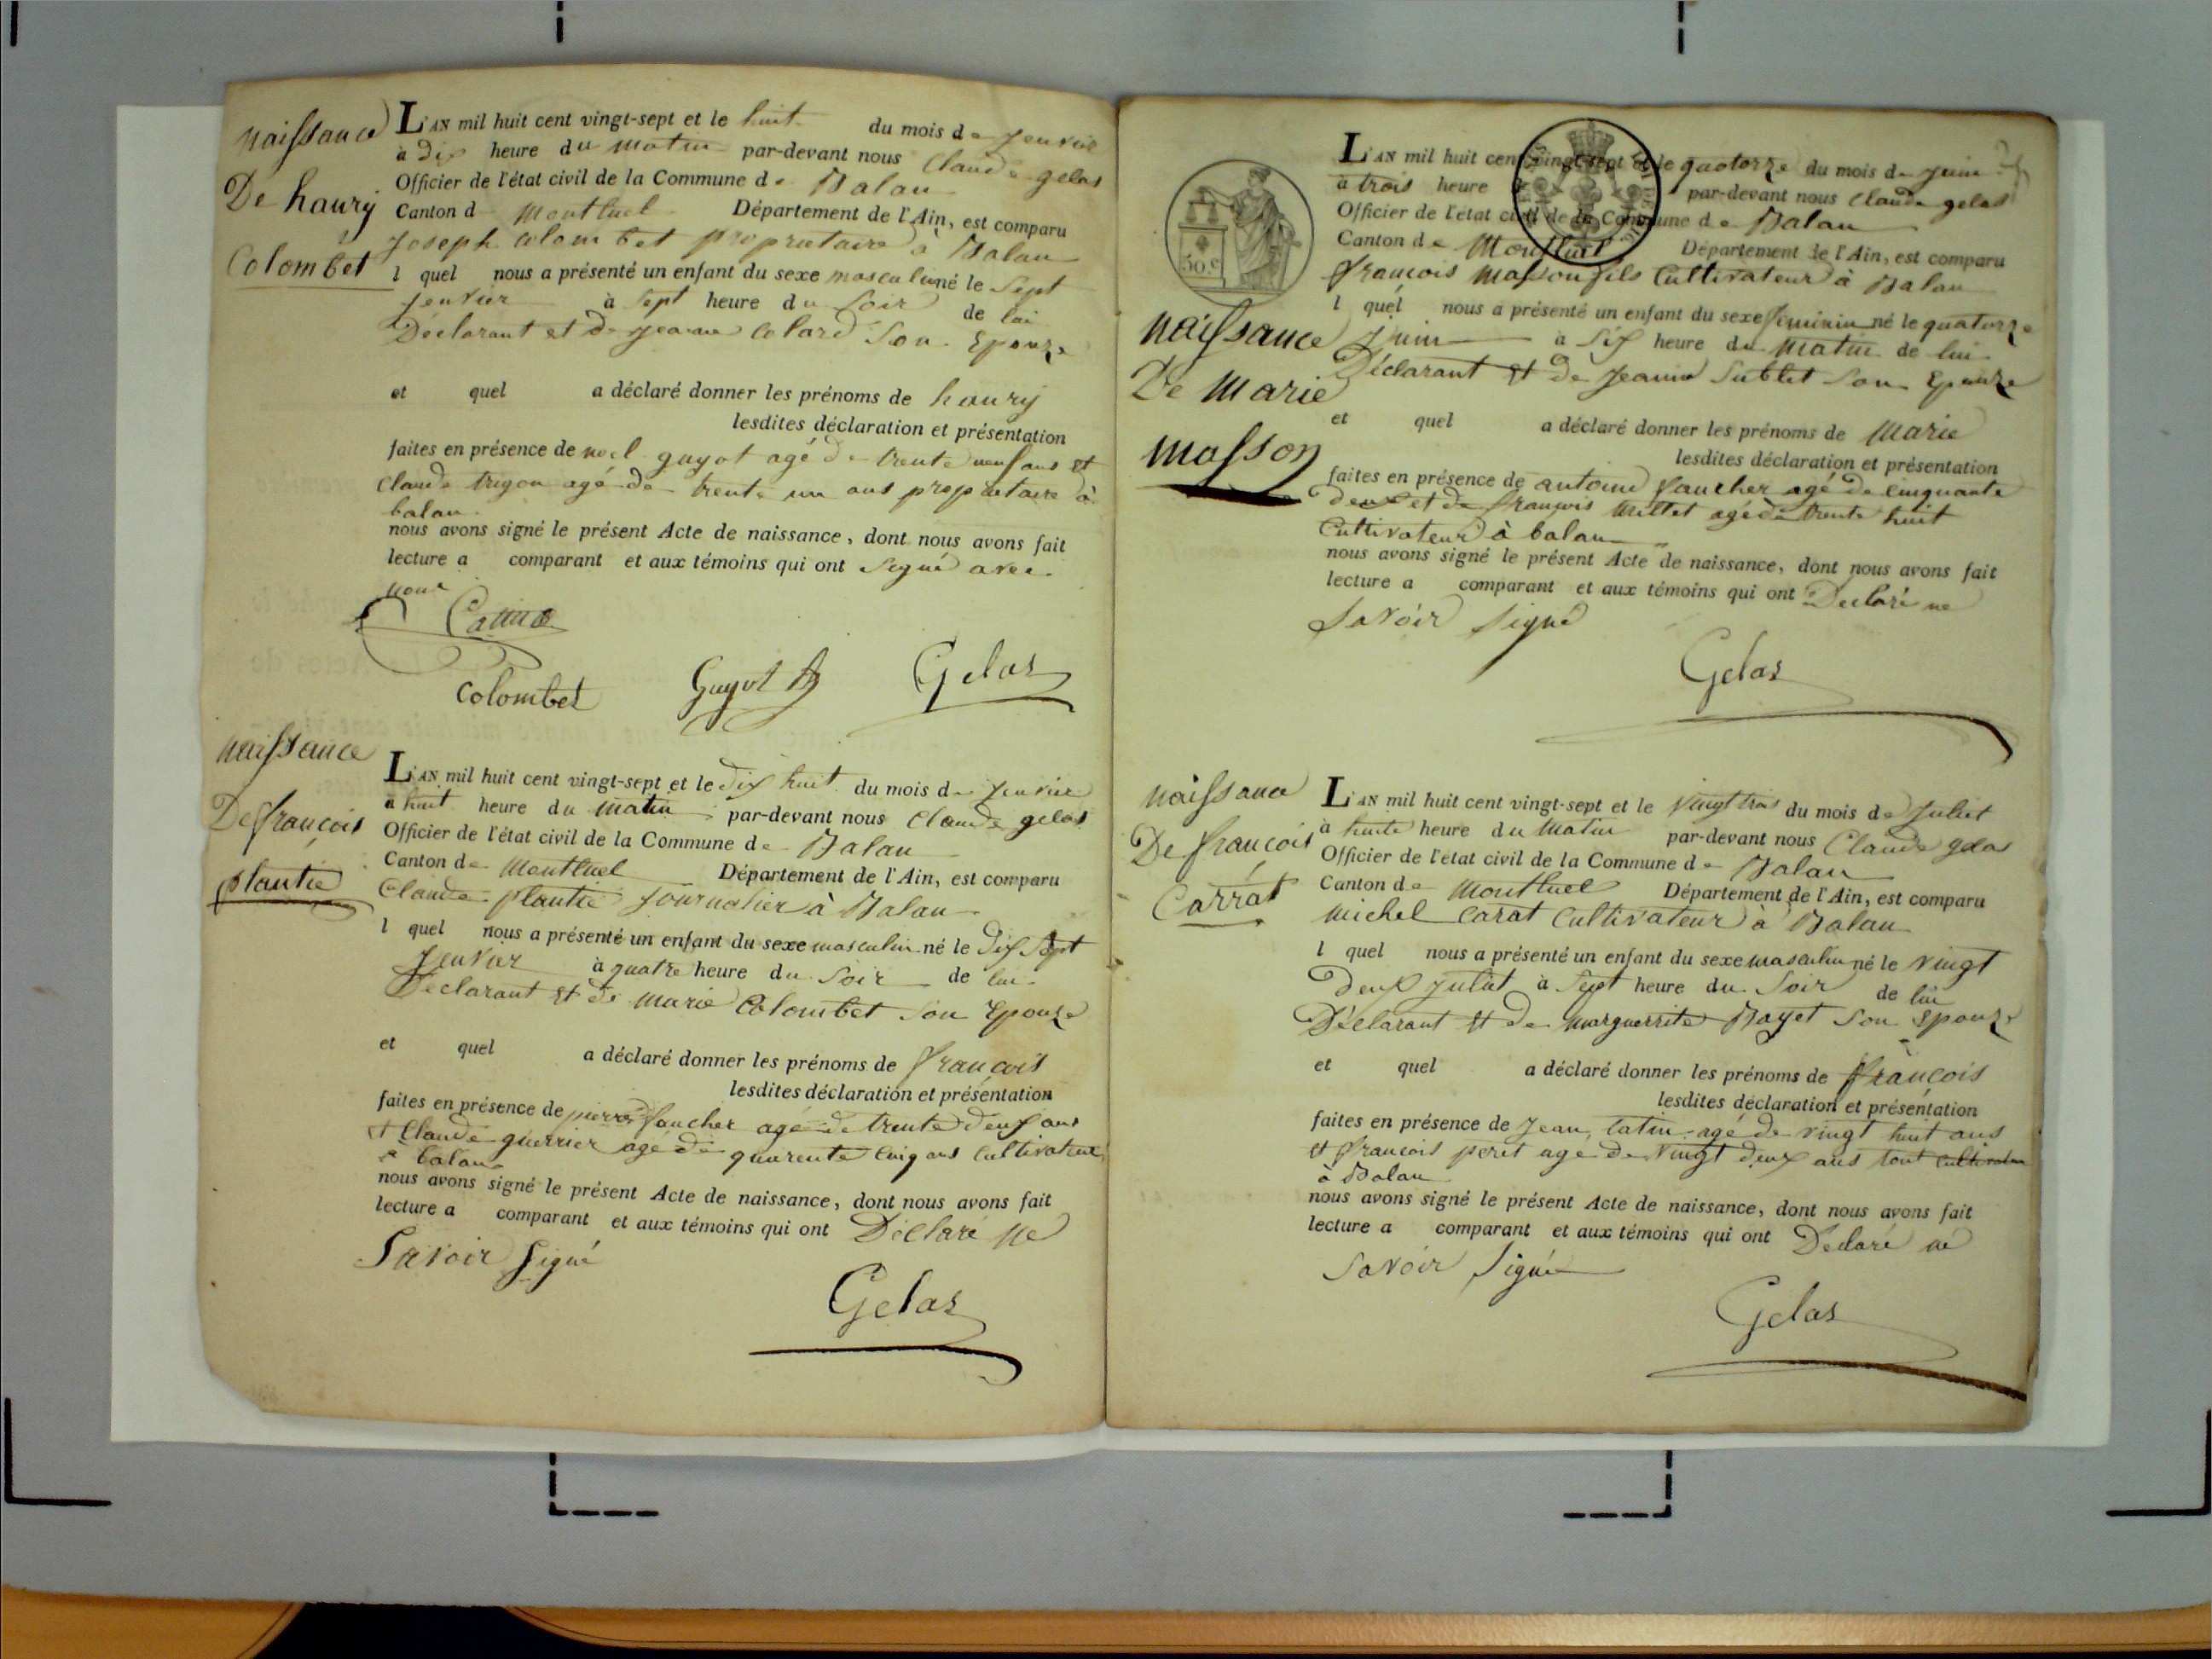 naissance
De haury
Colombet
L'AN mil huit cent vingt-sept et le huit du mois de Jenvier
à dix heure du matin par-devant nous Claude gelas
Officier de l'état civil de la Commune de Balan
Canton d Montluel Département de l'Ain, est comparu
Joseph Colombet propriétaire à Balan
l quel nous a présenté un enfant du sexe masculin né le Sept
Jenvier à Sept heure du Soir de lui
Déclarant et de Jeanne Colard Son Epouze
et quel a déclaré donner les prénoms de haury
lesdites déclaration et présentation
faites en présence de noel guyot agé de trente neuf ans et
Claude trigon agé de trente un ans propriétaire à
balan
nous avons signé le présent Acte de naissance, dont nous avons fait
lecture a comparant et aux témoins qui ont Signé avec
nous
Colombet Guyot Gelas
naissance
De françois
plantie
L'AN mil huit cent vingt-sept et le dix huit du mois de Jenvier
à huit heure du matin par-devant nous Claude gelas
Officier de l'état civil de la Commune de Balan
Canton de Montluel Département de l'Ain, est comparu
Claude plantie Journalier à Balan
l quel nous a présenté un enfant du sexe masculin né le Dix Sept
Jenvier à quatre heure du Soir de lui
Déclarant et de marie Colombet Son Epouze
et quel a déclaré donner les prénoms de françois
lesdites déclaration et présentation
faites en présence de pierre faucher agé de trente deux ans
et Claude guerrier agé de quarente cinq ans Cultivateur
à balan
nous avons signé le présent Acte de naissance, dont nous avons fait
lecture a comparant et aux témoins qui ont Déclaré ne
Savoir Signé
Gelas
50.c
naissance
De Marie
masson
L'AN mil huit cent vingt-sept et le quatorze du mois de Juin
à trois heure par-devant nous Claude gelas
Officier de l'état civil de la Commune de Balan
Canton de Montluel Département de l'Ain, est comparu
françois masson fils Cultivateur à Balan
l quel nous a présenté un enfant du sexe féminin né le quatorze
Juin à Six heure du matin de lui
Déclarant et de Jeanne Sublet Son Epouze
et quel a déclaré donner les prénoms de Marie
lesdites déclaration et présentation
faites en présence de antoine faucher agé de cinquante
deux et de françois Millet agé de trente huit
Cultivateur à balan
nous avons signé le présent Acte de naissance, dont nous avons fait
lecture a comparant et aux témoins qui ont Déclaré ne
Savoir Signé
Gelas
naissance
De françois
Carrat
L'AN mil huit cent vingt-sept et le vingt trois du mois de Juliet
à huite heure du Matin par-devant nous Claude gelas
Officier de l'état civil de la Commune de Balan
Canton de Montluel Département de l'Ain, est comparu
Michel Carat Cultivateur à Balan
l quel nous a présenté un enfant du sexe masculin né le vingt
Deux Juliet à Sept heure du Soir de lui
Déclarant et de marguerrite Bayet Son Epouze
et quel a déclaré donner les prénoms de françois
lesdites déclaration et présentation
faites en présence de Jean Catin agé de vingt huit ans
et françois peret agé de vingt deux ans tout cultivateur
à Balan
nous avons signé le présent Acte de naissance, dont nous avons fait
lecture a comparant et aux témoins qui ont Déclaré né
Savoir Signé
Gelas